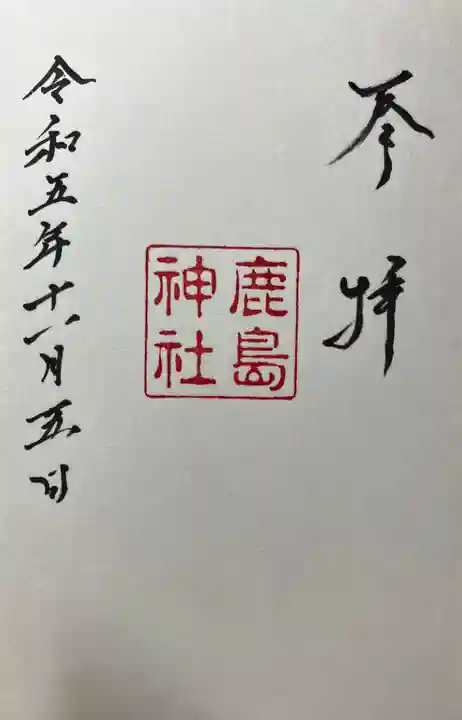 奉拝
鹿島
神社
令和五年十一月五日